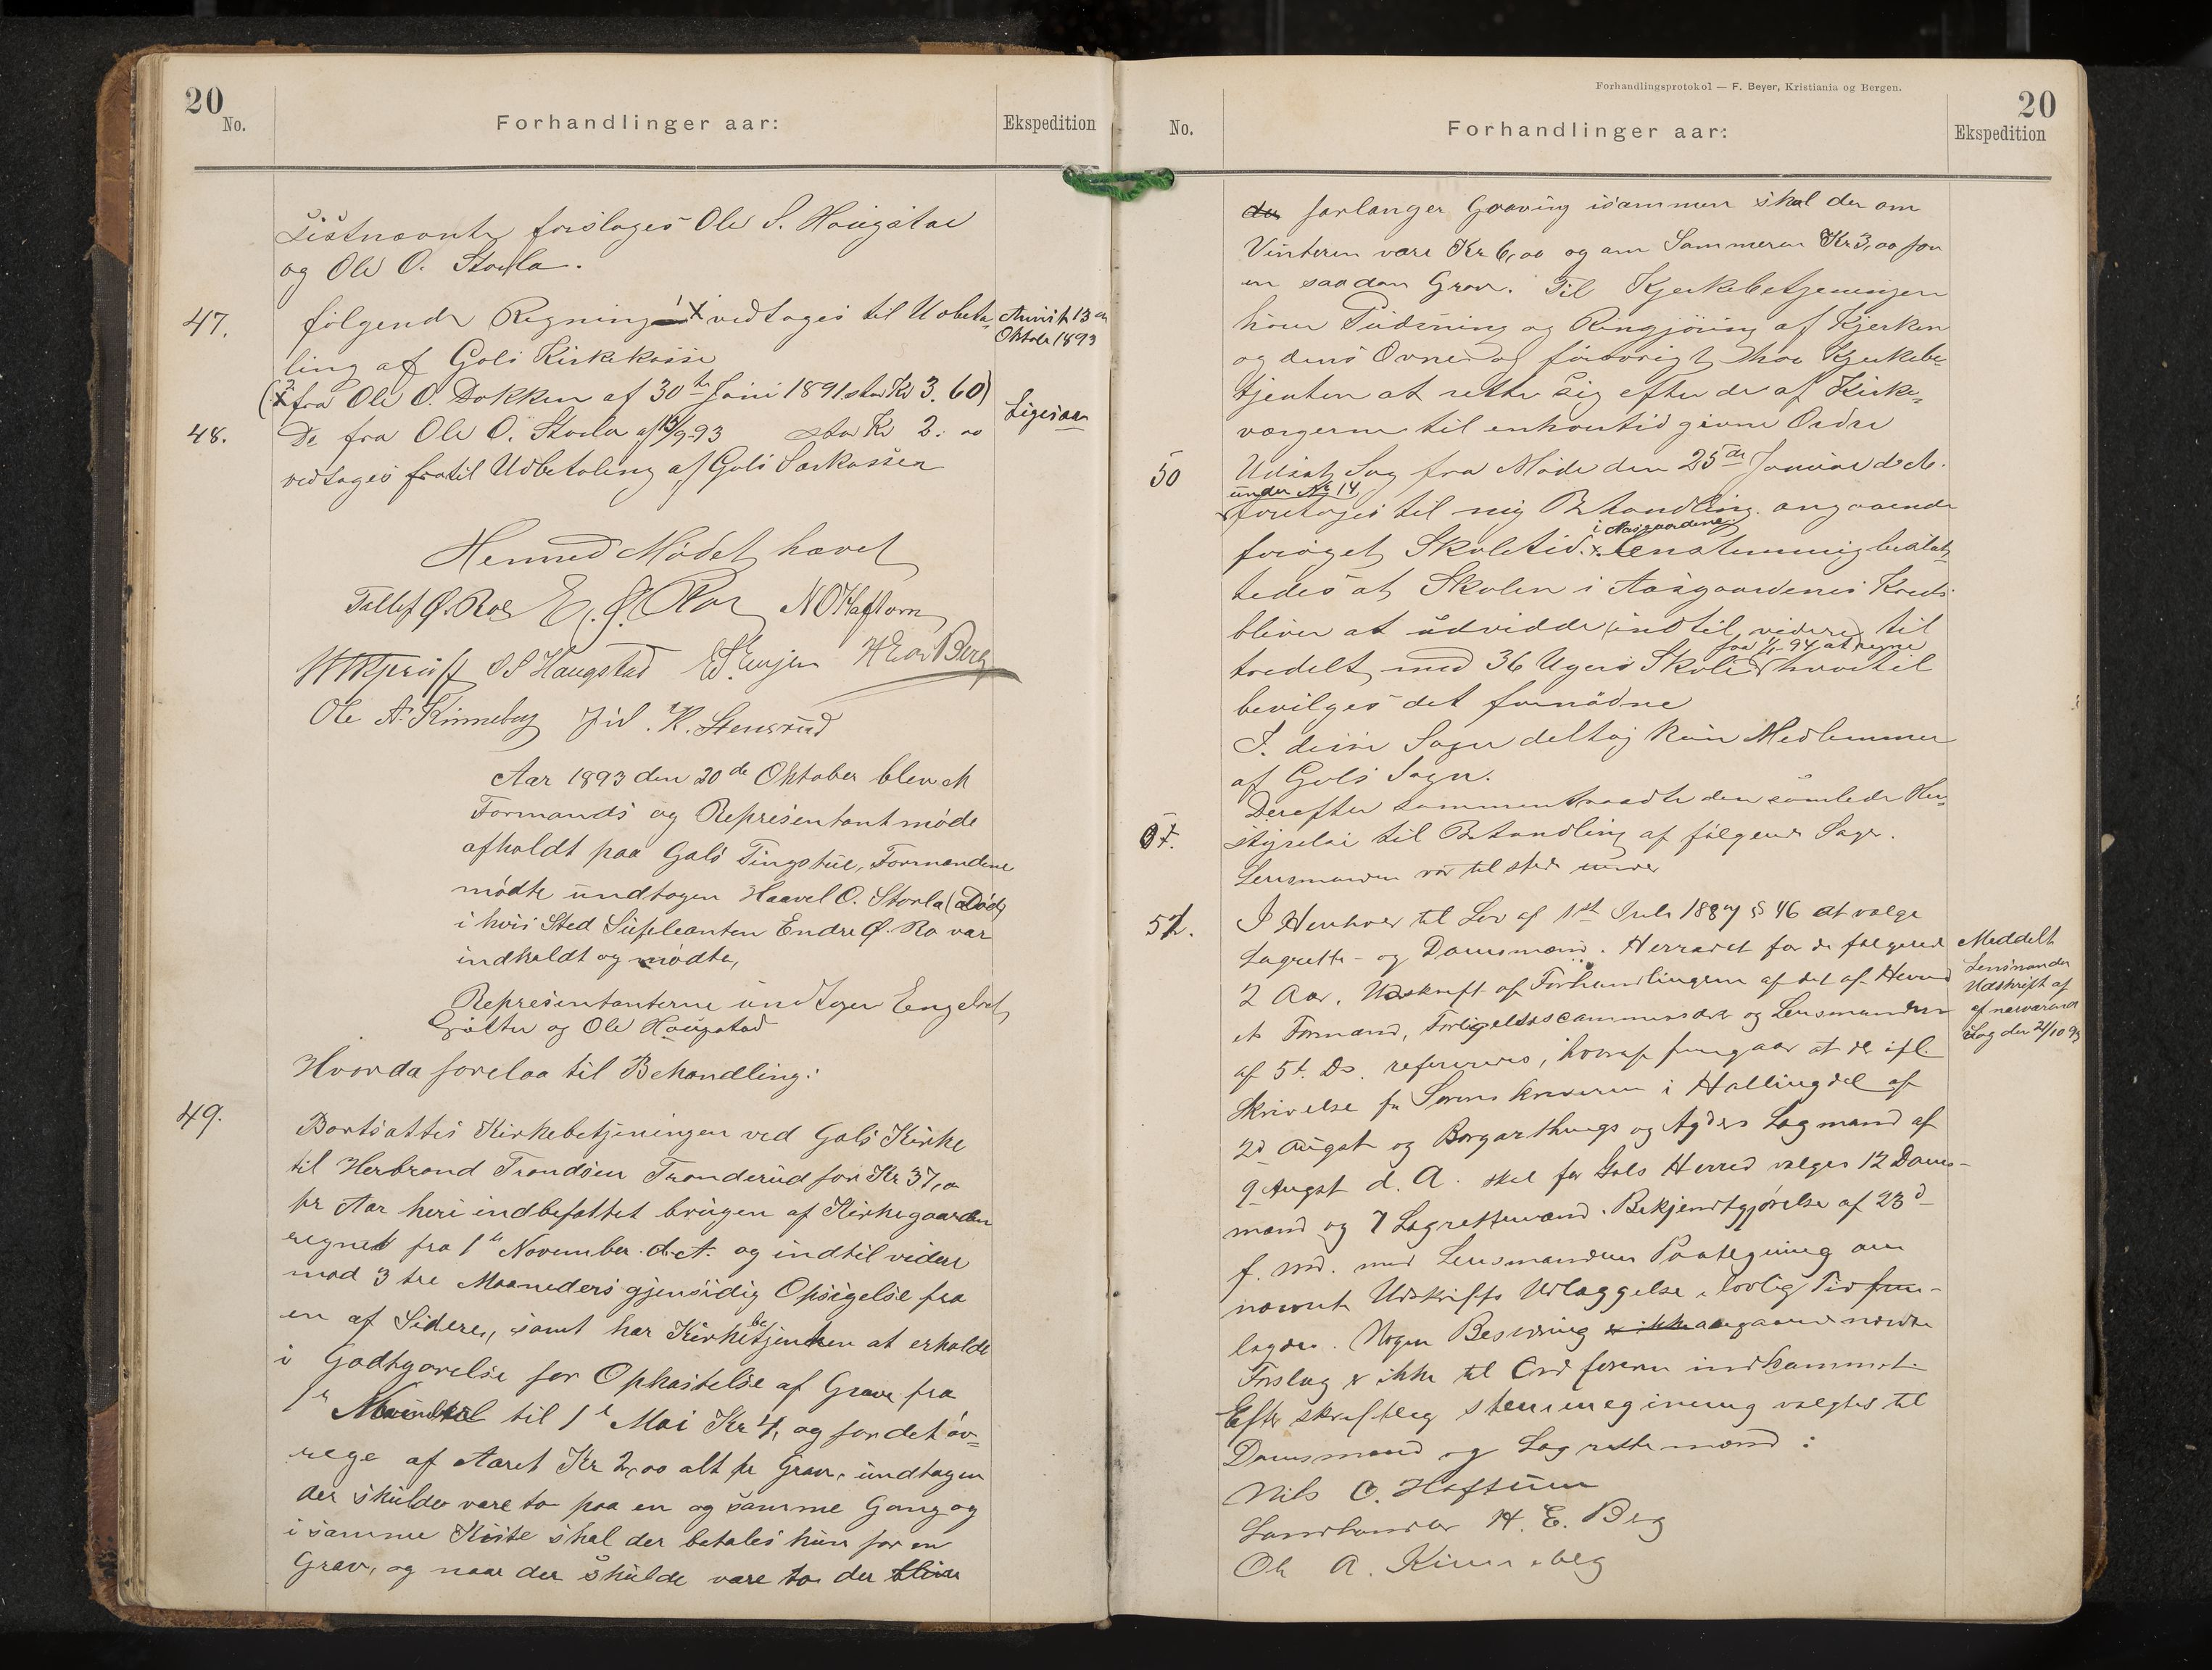 20
No.
Forhandlinger aar:
Ekspedition
Sistnævnte forslages Ole S. Haugstad
og Ole O. Storla.
47.
følgende Regning vedtages til Udbeta-
Anvist 13de
Oktober 1893
ling af Gols Kirkekasse
(fra Ole O. Dokken af 30te Juni 1891 stor Kr 3.60)
48.
De fra Ole O. Storla af 13/9-93 stor Kr 2.00
Ligesaa
vedtages fra til Udbetaling af Gols Sarkassen
Hermed Mødet hævet
Tollef Ø. Roe E. Ø. Ro N O Haftorn
S S Haugstad H E Berg
Ole A. Kinneberg K. Stensrud
Aar 1893 den 20de Oktober blev et
Formands og Representantmøde
afholdt paa Gols Tingstue, Formændene
mødte undtagen Haavel O. Storla (Død)
i hvis Sted Supleanten Endre Ø. Ro var
indkaldt og mødte,
Representanterne undtagen Engebret
Golter og Ole Haugstad
Hvorda forelaa til Behandling:
49.
Bortsattes Kirkebetjeningen ved Gols Kirke
til Herbrand Trondsen Tronderud for Kr 37,00
pr Aar heri indbefattet brugen af Kirkegaarden
regnet fra 1te November d. A. og indtil videre
mod 3 tre Maaneders gjensidig Opsigelse fra
en af Siderne, samt har Kirkebetjenten at erholde
i Godtgørelse for Opkastelse af Grave fra
1te November til 1te Mai Kr 4, og for det øv-
rege af Aaret Kr 2,00 alt pr Grav, undtagen
der skulde være to paa en og samme Gang og
i samme Kiste skal der betales kun for en
Grav, og naar der skulde være to der bliver
Forhandlingsprotokol — F. Beyer, Kristiania og Bergen.
20
No.
Forhandlinger aar:
Ekspedition
der forlanger Graving isammen skal der om
Vinteren være Kr 6,00 og om Sommeren Kr 3,00 for
en saadan Grav. Til Kjerkebetjeningen
hører Pudsning og Ringjøring af Kjerken
og dens Ovner og forøvrigt har Kjerkebe-
tjenten at rette sig efter de af Kirke-
værgerne til enhvertid givne Ordre
50
Udsat Sag fra Møde den 25de Januar d. A.
under No 14
foretages til ny Behandling angaaende
i Aasgaardene
forøget Skoletid. Enstemmig beslut-
tedes at Skolen i Aasgaardenes Kreds
bliver at udvidde indtil videre til
fra 1/1-94 at regne
tredelt med 36 Ugers Skole hvortil
bevilges det fornødne
I disse Sager deltog kun Medlemmer
af Gols Sogn.
Derefter sammentraadte den samlede Her-
51.
styrelse til Behandling af følgende Sager.
Lensmanden var til stede under
52.
I Henhold til Lov af 1st Juli 1887 § 46 at vælge
Lagrette- og Domsmænd. Herredet for de følgende
2 Aar. Udskrift af Forhandlingerne af det af Herred
ets Formænd, Forligelsescommissærer og Lensmanden
af 5t. Ds. refereres, hvoraf fremgaar at der ifl.
Skrivelse fr Sorenskriveren i Hallingdal af
2d Augst og Borgarthings og Agders Lagmand af
9 Augst d. A. skal for Gols Herred vælges 12 Doms-
mænd og 7 Lagrettemænd. Bekjendtgjørelse af 23d
f. Md. med Lensmandens Paategning om
nævnte Udskrifts Udlæggelse i lovlig Tid frem-
lagdes. Nogen Besværing er ikke angaaende nævnte
Forslag er ikke til Ordføreren indkommet.
Efter skriftlig stemmegivning valgtes til
Domsmænd og Lagrettemænd:
Nils O. Haftorn
Landhandler H. E. Berg
Ole A. Kinneberg
Meddelt
Lensmanden
Udskrift af
af nærværende
Sag den 21/10 93